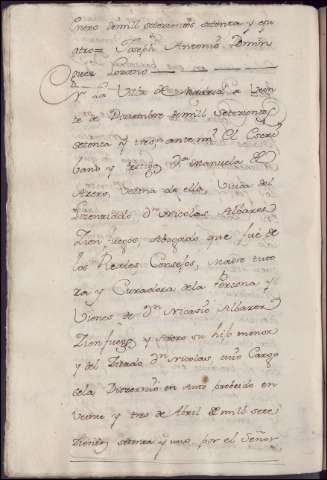 Enero de mil setecientos setenta y qua
tro = Joseph Antonio Domin
guez Lozano
En la Villa de Madrid a Vein
te de Diciembre de mil setecientos
setenta y tres ante mi el Escri
bano y testigos Dª Manuela de
Azero, Vecina de ella, Viuda del
Lizenziado Dn Nicolas Albarez
Zien fuegos, Abogado que fue de
los Reales Consejos, Madre tuto
ra y Curadora de la Persona y
Vienes de Dn Nicasio Albarez
Zienfuegos y Azero su hijo menor
y del zitado Dn Nicolas, cuio Cargo
se la Diszernio en Auto probeido en
Veinte y tres de Abril de mil sete
zientos setenta y uno, por el Señor